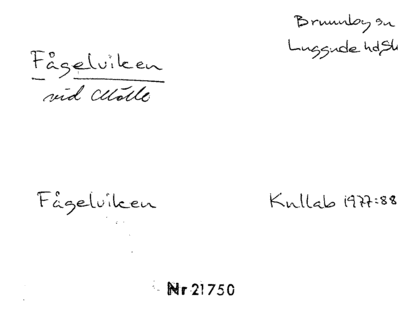 Brunnby sn
Luggude hd, Sk
Fågelviken
vid Mölle
Fågelviken
Kullab 1977:88
Nr 21750